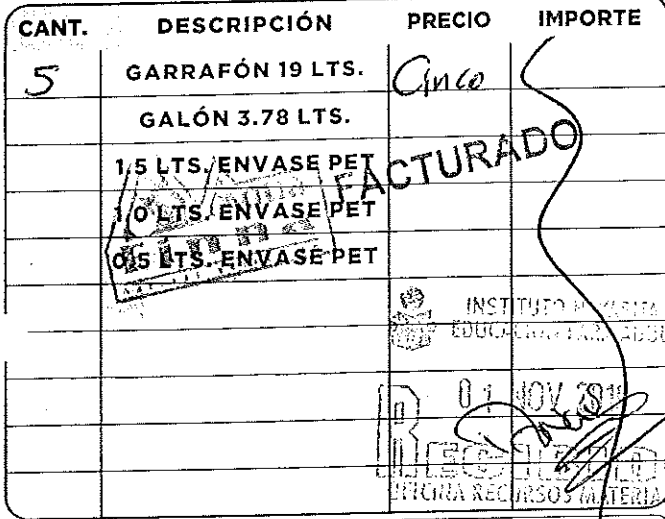 CANT. DESCRIPCIÓN PRECIO IMPORTE
5 GARRAFÓN 19 LTS. Cinco
GALÓN 3.78 LTS.
1.5 LTS. ENVASE PET
FACTURADO
1.0 LTS. ENVASE PET
0.5 LTS. ENVASE PET
INSTITUTO
EDUCACIÓN PARA
01 NOV
RECIBIDO
OFICINA RECURSOS MATERIA